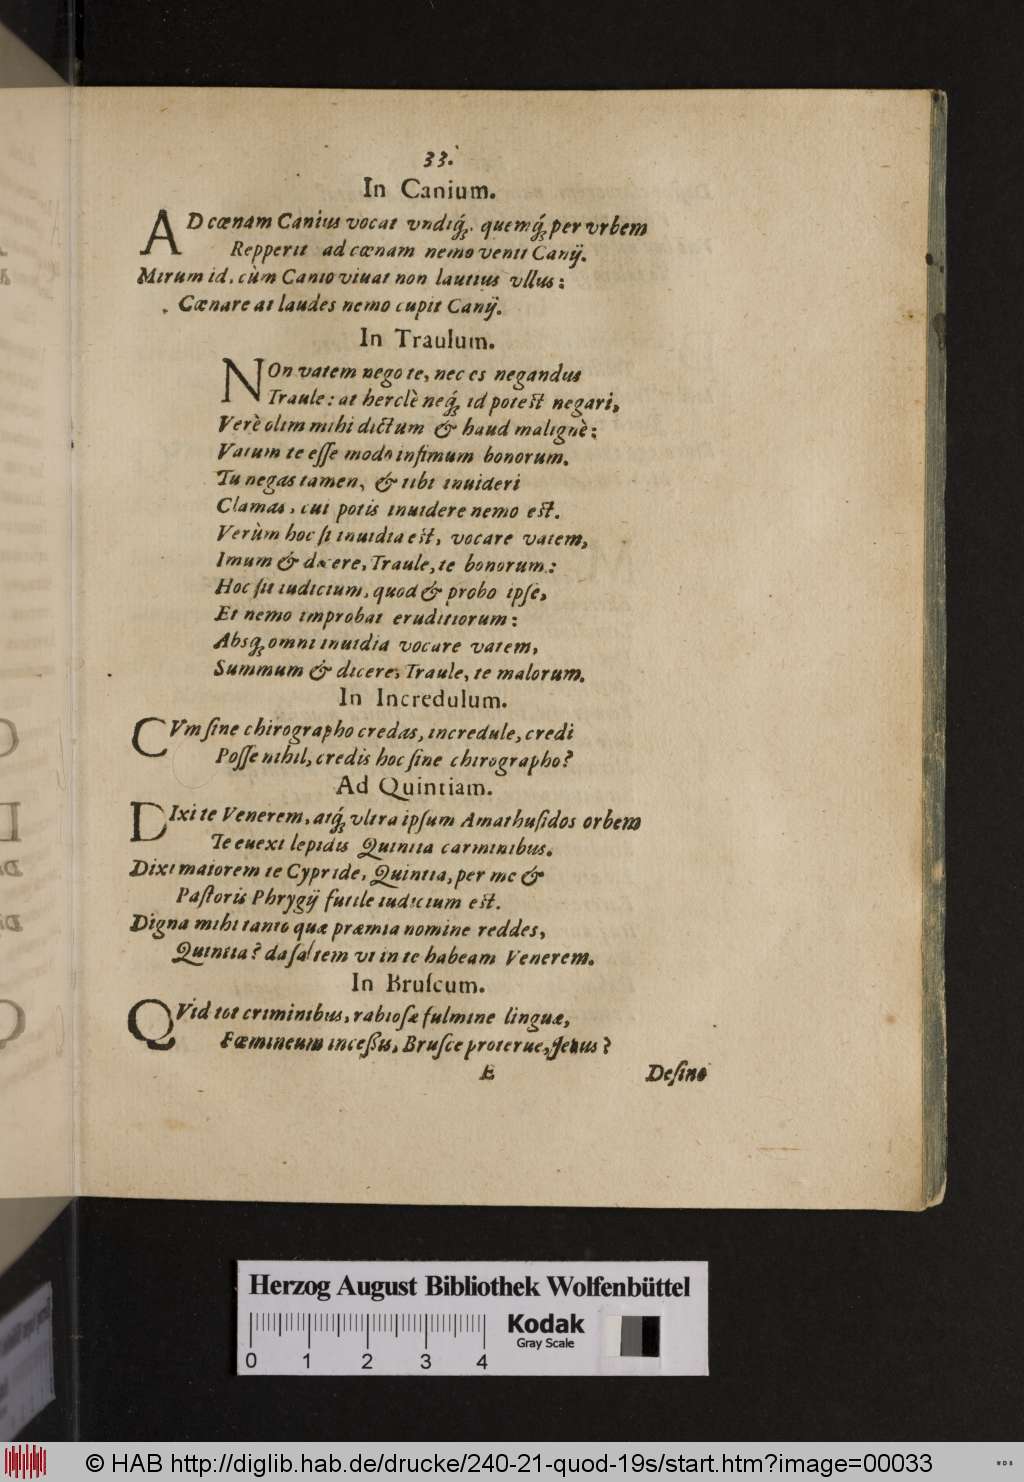 33.
In Canium.
AD cœnam Canius vocat vndiq́;, quemq́; per vrbem
Repperit ad cœnam nemo venit Canij.
Mirum id, cùm Canio viuat non lautius vllus:
Cœnare at laudes nemo cupit Canij.
In Traulum.
NOn vatem nego te, nec es negandus
Traule: at herclè neq́; id potest negari,
Verè olim mihi dictum & haud malignè:
Vatum te eſſe modo infimum bonorum.
Tu negas tamen, & tibi inuideri
Clamas, cui potis inuidere nemo est.
Verùm hoc ſi inuidia est, vocare vatem,
Imum & dicere, Traule, te bonorum:
Hoc ſit iudicium, quod & probo ipſe,
Et nemo improbat eruditiorum:
Absq; omni inuidia vocare vatem,
Summum & dicere, Traule, te malorum.
In Incredulum.
CVm ſine chirographo credas, incredule, credi
Poſſe nihil, credis hoc ſine chirographo?
Ad Quintiam.
DIxi te Venerem, atq́; vltra ipſum Amathuſidos orbem
Te euexi lepidis Quintia carminibus.
Dixi maiorem te Cypride, Quintia, per me &
Paſtoris Phrygij futile iudicium est.
Digna mihi tanto quæ præmia nomine reddes,
Quintia? da ſaltem vt in te habeam Venerem.
In Bruſcum.
QVid tot criminibus, rabioſæ fulmine linguæ,
Fœmineum inceßis, Bruſce proterue, ſexus?
E Deſino
Herzog August Bibliothek Wolfenbüttel
Kodak
Gray Scale
0 1 2 3 4
© HAB http://diglib.hab.de/drucke/240-21-quod-19s/start.htm?image=00033